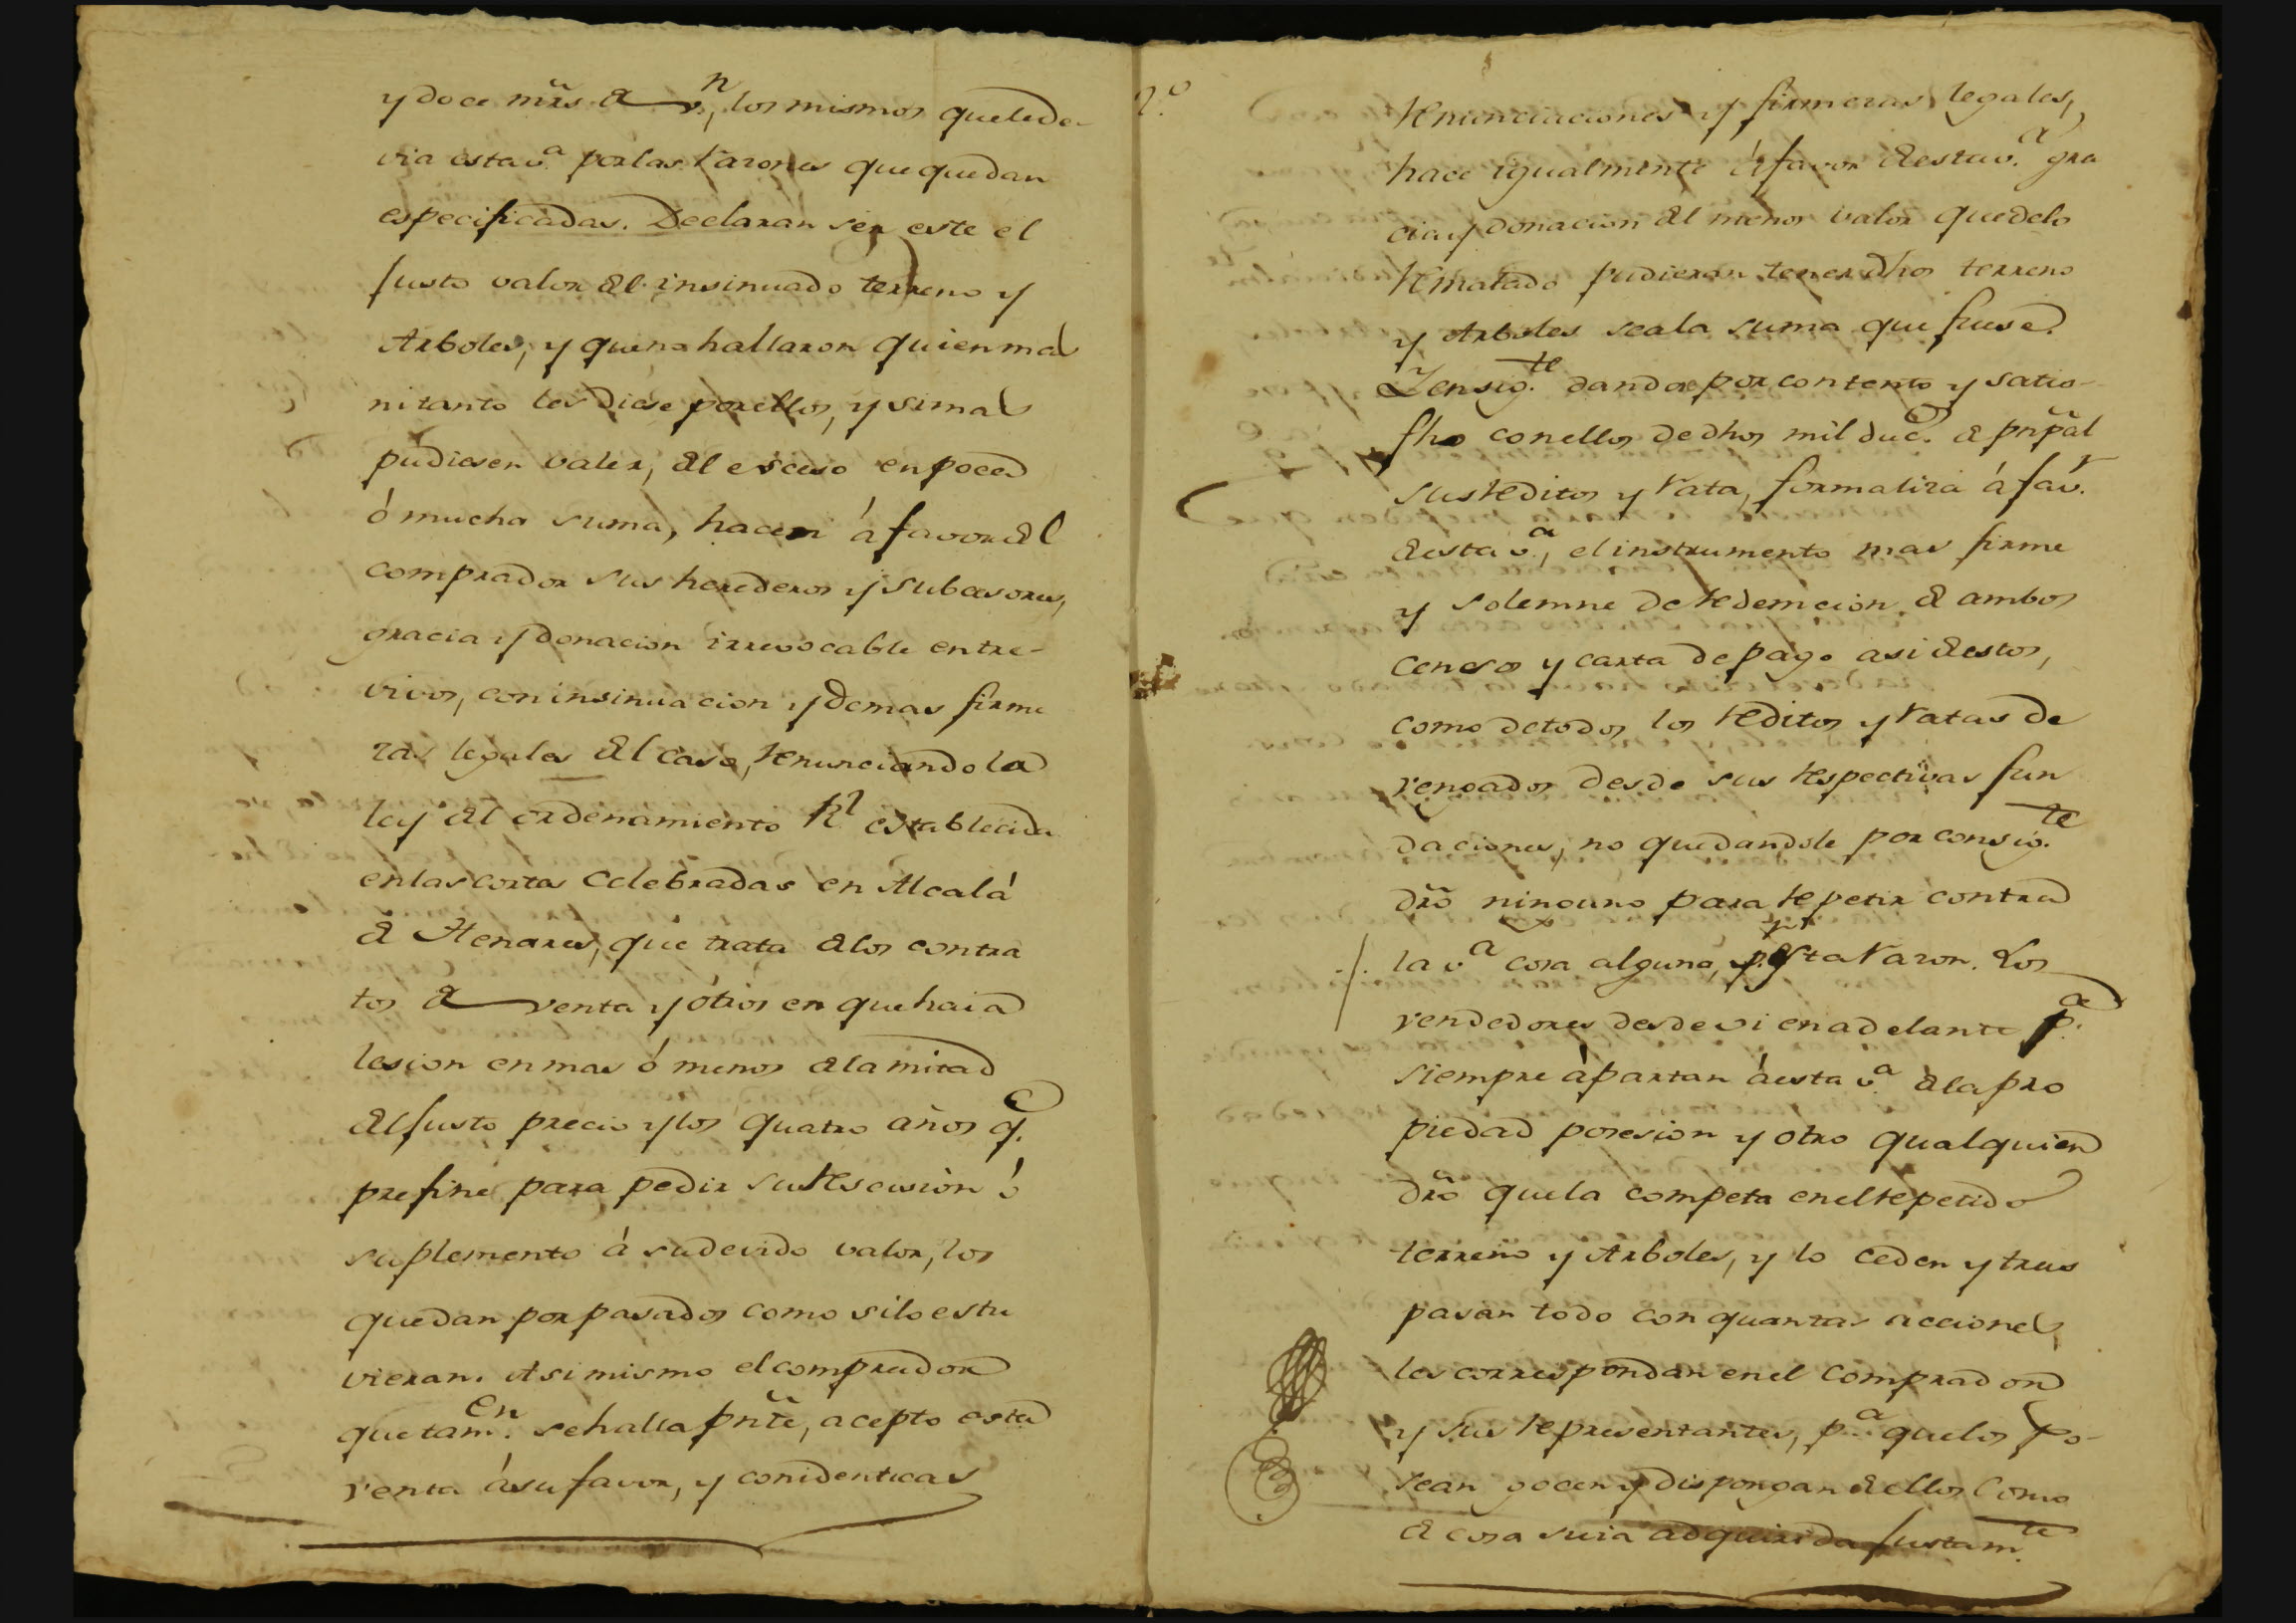 y doce mr̃s. de v.n, los mismos que le de
via esta v.a por las razones que quedan
especificadas. Declaran ser este el
justo valor del insinuado terreno y
Arboles, y que no hallaron quien mas
ni tanto les diese por ellos, y si mas
pudiesen valer, del esceso en poca
ó mucha suma, hacen á favor del
comprador sus herederos y subcesores,
gracia y donacion irrevocable entre-
vivos, con insinuacion y demas firme
zas legales del caso, renunciando la
ley del ordenamiento Rl establecida
en las cortes celebradas en Alcalá
de Henares, que trata de los contra
tos de venta y ótros en que haia
lesion en mas ó menos de la mitad
del justo precio y los quatro años q.e
prefine para pedir su rescision ó
suplemento á su devido valor, los
quedan por pasados como si lo estu
vieran. Asi mismo el comprador
que tam.en se halla pñte, acepto esta
venta á su favor, y con identicas
2.o
renunciaciones y firmezas legales,
hace igualmente á favor de esta v.a gra
cia y donacion del menor valor que de lo
rematado pudieran tener dhos terreno
y Arboles sea la suma que fuese.
Y en sig.te dandose por contento y satis-
fho con ellos de dhos mil duc.s de pñpal
sus reditos y rata, formaliza á fav.r
de esta v.a, el instrumento mas firme
y solemne de redemcion de ambos
censos y carta de pago asi de estos,
como de todos los reditos y ratas de
vengados desde sus respectivas fun
daciones, no quedandole por consig.te
dr̃o ninguno para repetir contra
la v.a cosa alguna, p.r esta razon. Los
vendedores desde oi en adelante p.a
siempre ápartan á esta v.a de la pro
piedad posesion y otro qualquier
dr̃o que la competa en el repetido
terreno y Arboles, y lo ceden y tras
pasan todo con quantas acciones
les correspondan en el comprador
y sus representantes, p.a que los po-
sean gocen y dispongan de ellos como
de cosa suia adquirida justam.te